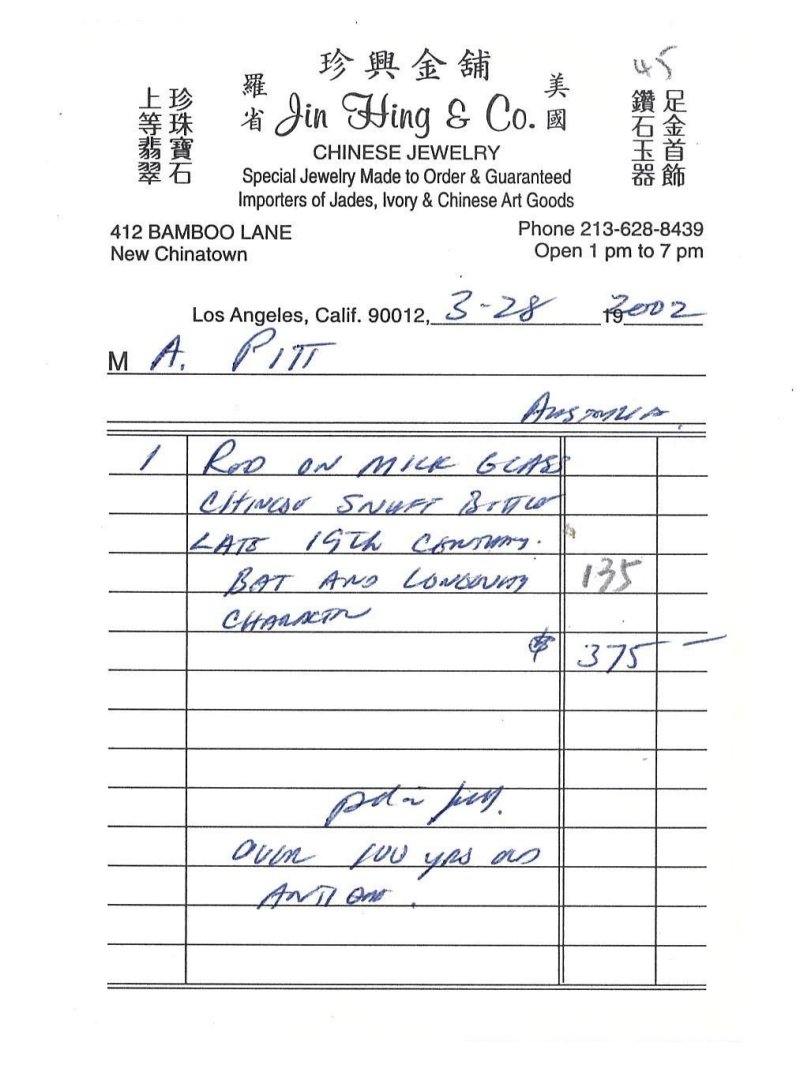 45
珍興金舖
羅省
美國
珍珠寶石
上等翡翠
足金首飾
鑽石玉器
Jin Hing & Co.
CHINESE JEWELRY
Special Jewelry Made to Order & Guaranteed
Importers of Jades, Ivory & Chinese Art Goods
412 BAMBOO LANE
New Chinatown
Phone 213-628-8439
Open 1 pm to 7 pm
Los Angeles, Calif. 90012, 3-28 19 2002
M A. PITT
AUSTRALIA
1 RED ON MILK GLASS
CHINESE SNUFF BOTTLE
LATE 19Th CENTURY.
BAT AND LONGEVITY 135
CHARACTER
$ 375 —
pd in full.
OVER 100 YRS OLD
ANTIQUE.